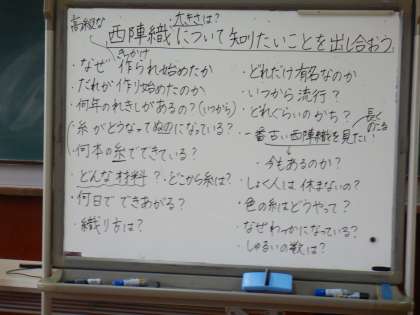 高級な
大きさは?
西陣織について知りたいことを出し合おう
きっかけ
・なぜ 作られ始めたか
・だれが作り始めたのか
・何年のれきしがあるの?(いつから)
・糸がどうなって
になっている?
・何本の糸でできている?
・どんな材料?・どこから糸は?
・何日で できあがる?
・織り方は?
・どれだけ有名なのか
・いつから流行?
・どれぐらいのかち?
長く
のこる
・一番古い西陣織を見たい!
・今もあるのか?
・しょく人は 休まないの?
・色の糸はどうやって?
・なぜわっかになっている?
・しゅるいの数は?